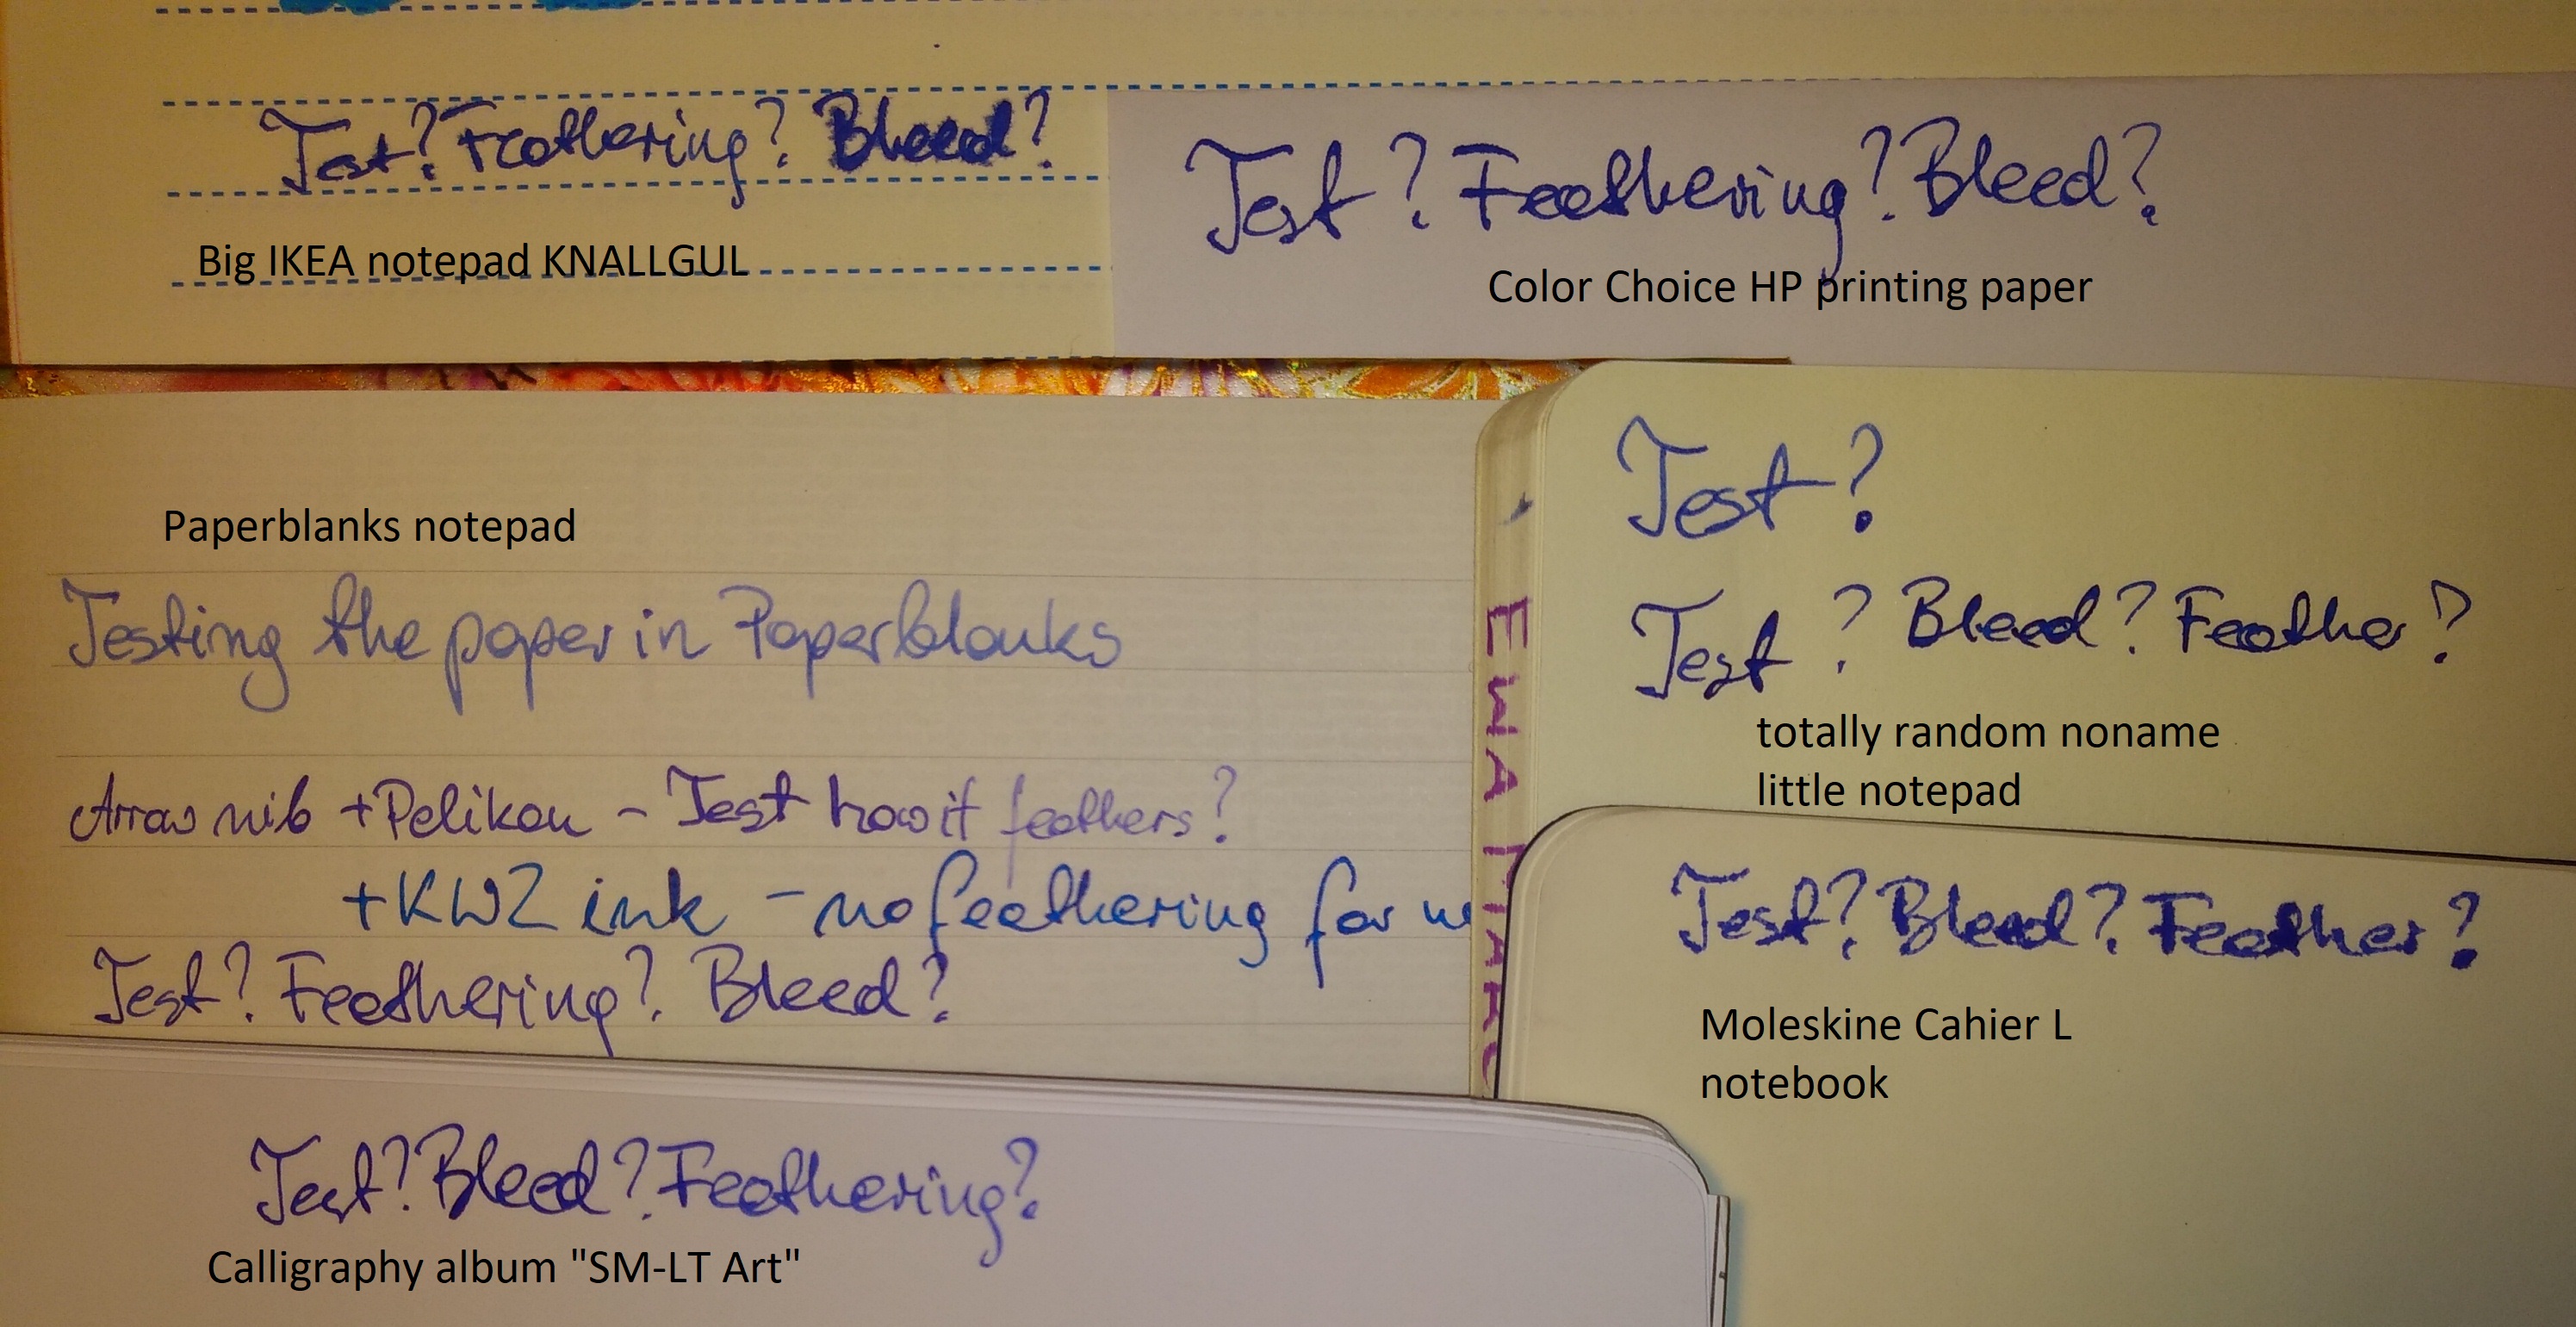 Test? Feathering? Bleed?
Big IKEA notepad KNALLGUL
Test? Feathering? Bleed?
Color Choice HP printing paper
Paperblanks notepad
Testing the paper in Paperblanks
Arrow nib + Pelikan - Test how it feathers?
+ KWZ ink - no feathering for
Test? Feathering? Bleed?
Test?
Test? Bleed? Feather?
totally random noname
little notepad
EWA
Test? Bleed? Feather?
Moleskine Cahier L
notebook
Test? Bleed? Feathering?
Calligraphy album "SM-LT Art"